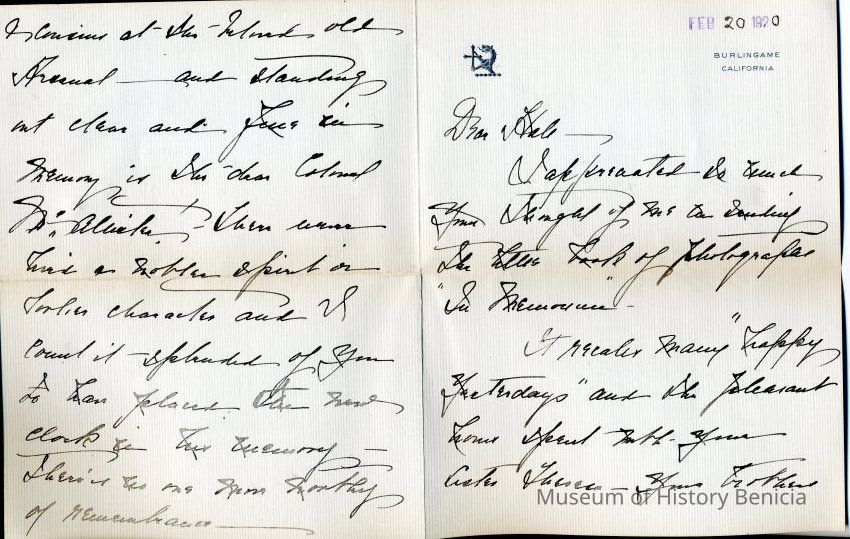 FEB 20 1920
BURLINGAME
CALIFORNIA
Dear
I appreciated so much
your thought of me in sending
the little book of photographs
"In Memoriam" -
It recalls many "happy
yesterdays" and the pleasant
hours spent with your
sister — your brothers
cousins at the beloved old
Arsenal — and standing
out clear and fine in
memory is the dear Colonel
- there never
lived a nobler spirit or
character and I
count it splendid of you
to have placed the new
clock in his memory —
There is no one more worthy
of remembrance —
Museum of History Benicia